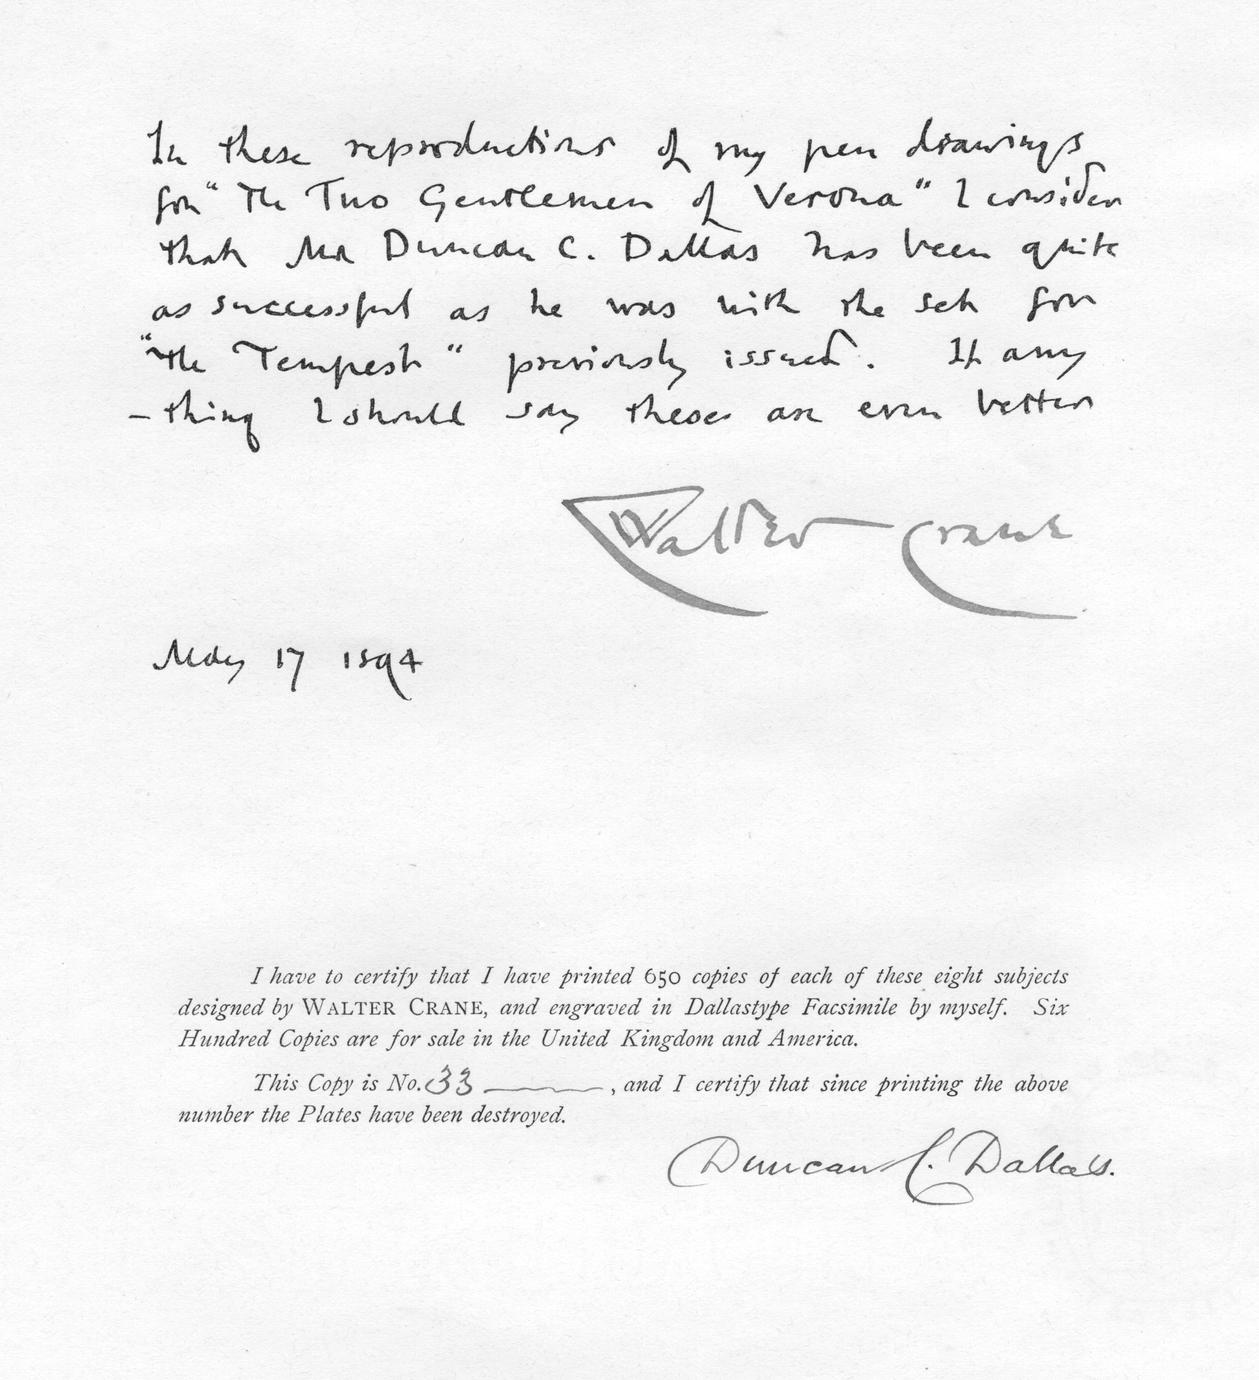 In these reproductions of my pen drawings
for "The Two Gentlemen of Verona" I consider
that Mr Duncan C. Dallas has been quite
as successful as he was with the set for
"The Tempest" previously issued. If any
- thing I should say these are even better
Walter Crane
May 17 1894
I have to certify that I have printed 650 copies of each of these eight subjects
designed by WALTER CRANE, and engraved in Dallastype Facsimile by myself. Six
Hundred Copies are for sale in the United Kingdom and America.
This Copy is No. 33 , and I certify that since printing the above
number the Plates have been destroyed.
Duncan C. Dallas.